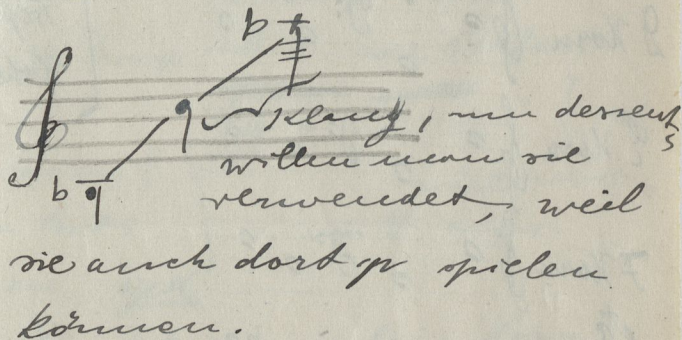 b
b
Klang, um dessent
willen man sie
verwendet, weil
sie auch dort p spielen
können.